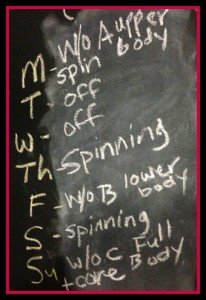 M - W/O A upper
body
spin
T - off
W - off
Th - Spinning
F - W/O B lower
body
S - spinning
Su w/o C Full
+ core Body